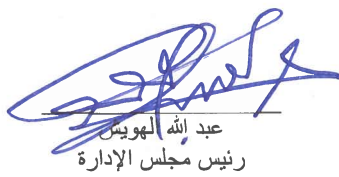 عبد الله الهويش
رئيس مجلس الإدارة